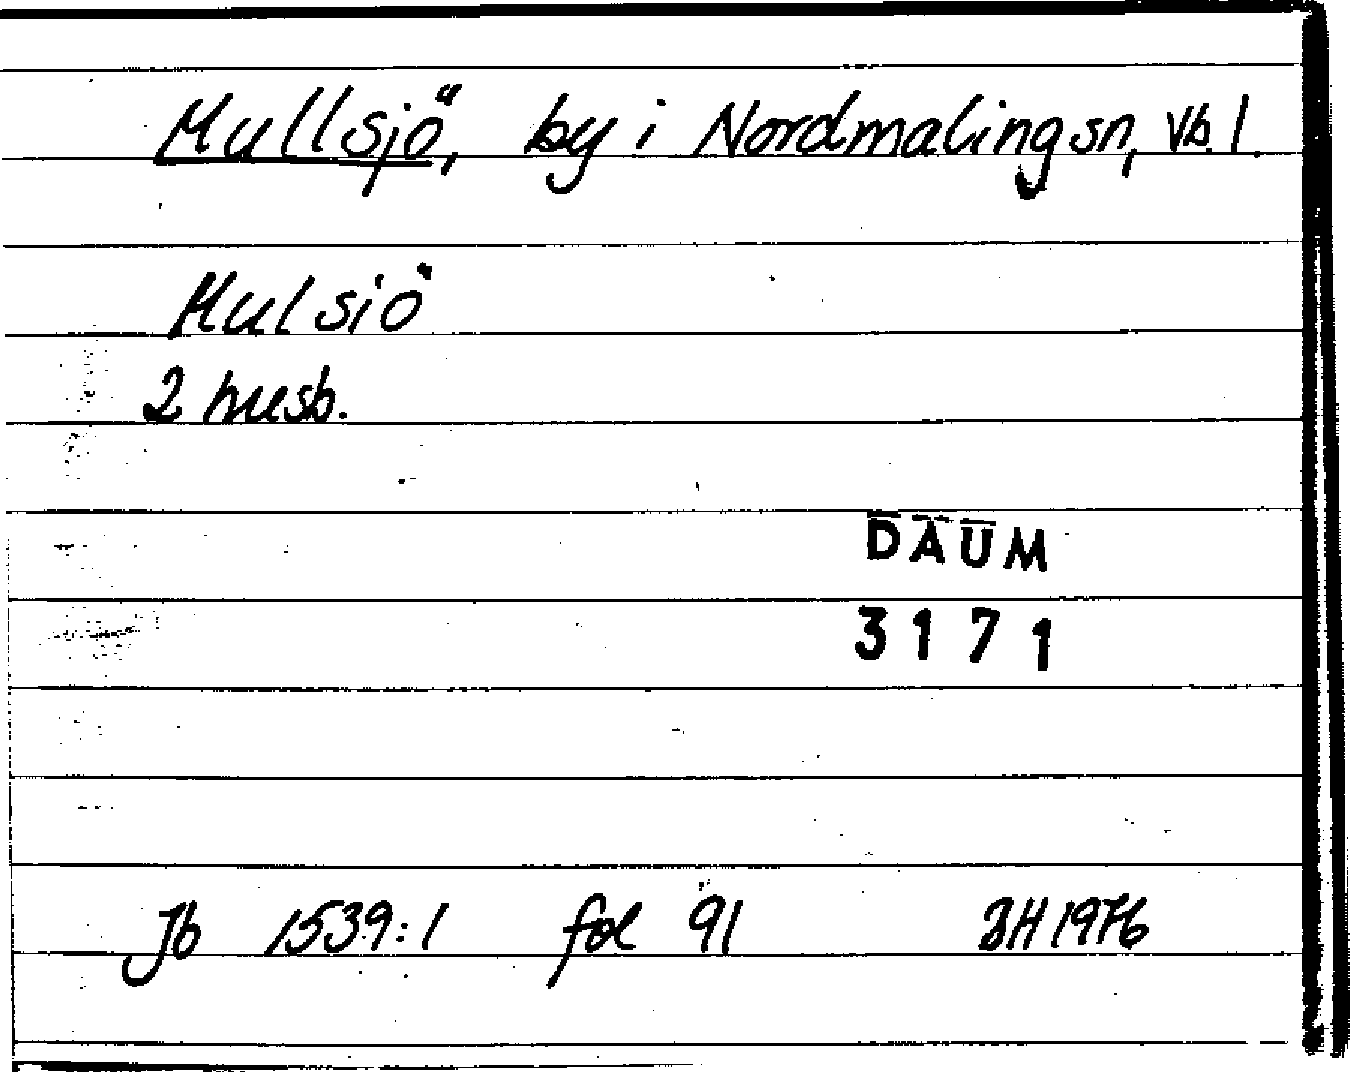 Mullsjö, by i Nordmaling sn, Vb. l.
Mulsiö
2 husb.
DAUM
3171
Jb 1539:1 fol 91 JH 1976